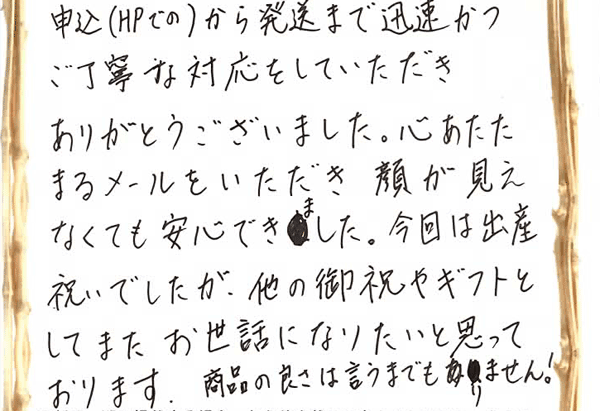 申込(HPでの)から発送まで迅速かつ
ご丁寧な対応をしていただき
ありがとうございました。心あたた
まるメールをいただき 顔が見え
なくても安心できました。今回は出産
祝いでしたが、他の御祝やギフトと
してまた お世話になりたいと思って
おります。商品の良さは言うまでもありません!